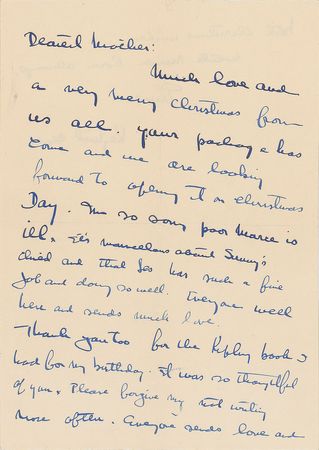 Dearest Mother:
Much love and
a very merry Christmas from
us all. Your package has
come and we are looking
forward to opening it on Christmas
Day. I'm so sorry poor Maree is
ill. It's marvellous about Sunny's
child and that Leo has such a fine
job and doing so well. Everyone well
here and sends much love.
Thank you too for the Kipling book I
had for my birthday. It was so thoughtful
of you. Please forgive my not writing
more often. Everyone sends love and